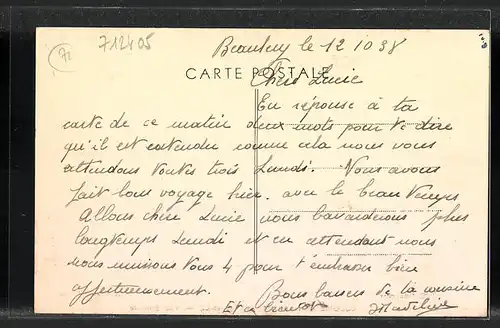 71
712405
le 12 10 38
CARTE POSTALE
Chère Lucie
En réponse à ta
carte de ce matin deux mots pour te dire
qu'il est entendu comme cela nous vous
attendons toutes trois Lundi. Nous avons
fait bon voyage hier. avec le beau temps
Allons chère Lucie nous bavarderons plus
longtemps Lundi et en attendant nous
nous unissons tous 4 pour t'embrasser bien
affectueusement. Bons baisers de ta cousine
Et à bientôt